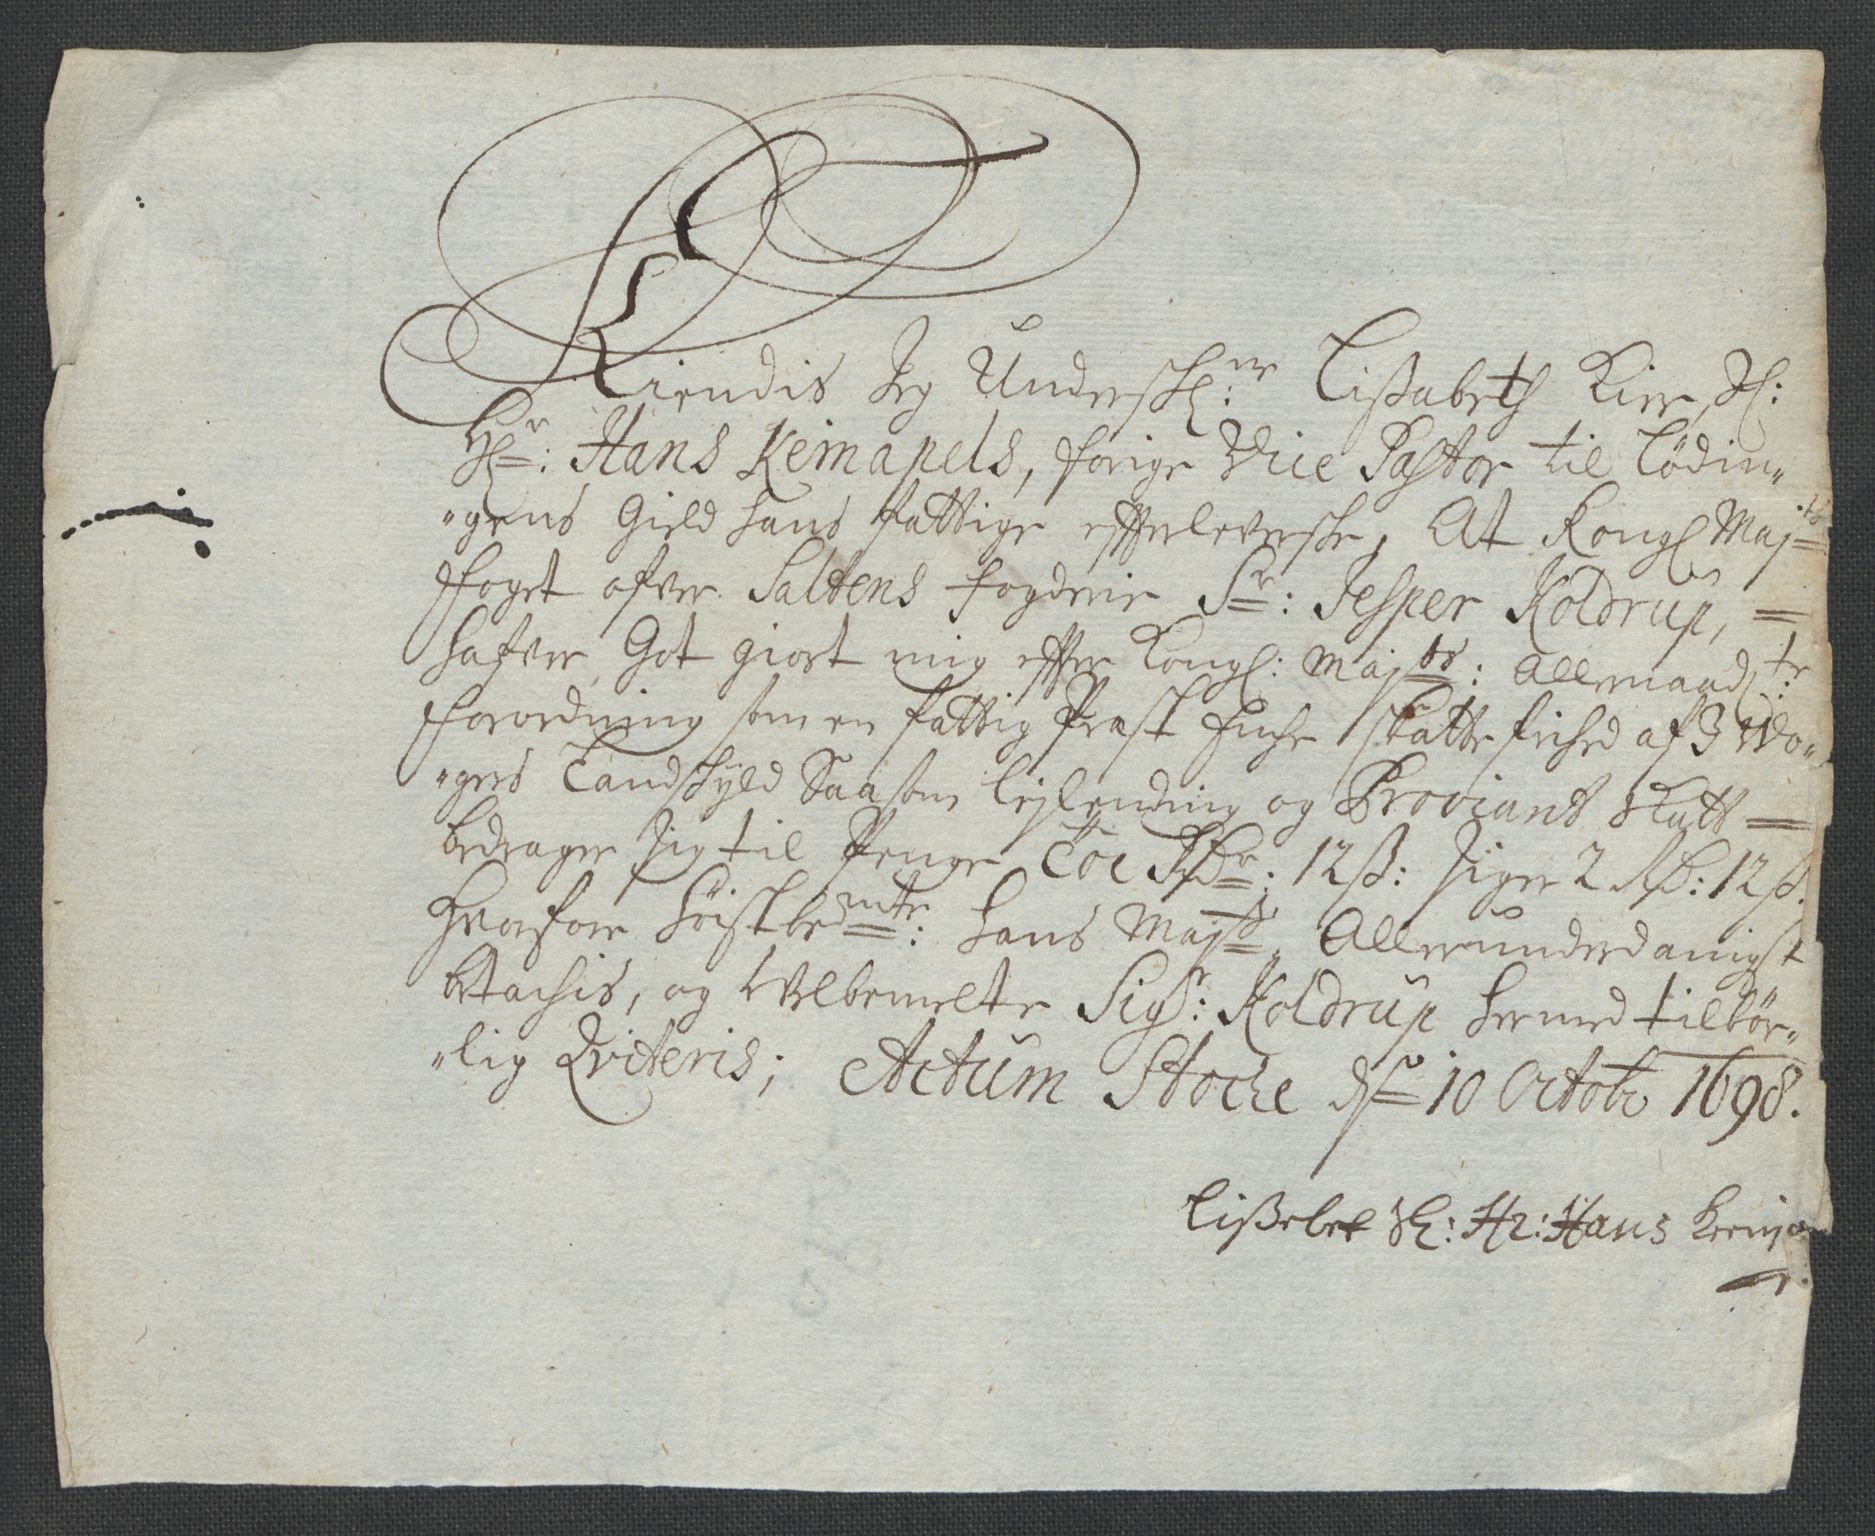 Kiendis Jeg Undersch: er Lißabeth Kier, Sl:
Hr: Hans Kempapels, forige Vice Pastor til Lödin„
„gens Gield hans fattige effterleversche, At Kongl Maj ts
Foget ofver Saltens fogderie Sr: Jesper Koldrup, =
hafver Got giort mig effter Kongl: Majts: Allernaad: te
forordning som en fattig Præst Enche skatte frihed af 3 Wo„
„gers Landschyld Saasom Leylending og Proviant skatt =
bedrager sig til Penge Toe Rdr: 12 ß: siger 2 Rd: 12 ß.
Hvorfore höistbemte: Hans Majt. Allerunderdanigst
betachis, og velbemelte Sigr: Koldrup hermed tilbör„
„lig Qviteris; Actum Stocke dn 10 Octobr 1698.
Lißebet Sl: Hr: Hans